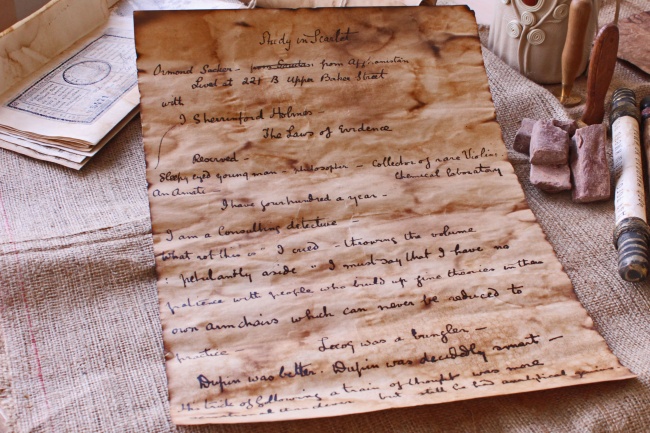 Study in Scarlet
Ormond Sacker - from Afghanistan
Lived at 221 B Upper Baker Street
with
I Sherrinford Holmes -
The Laws of Evidence
Reserved -
Sleepy eyed young man - philosopher - Collector of rare Violins
An Amati
Chemical laboratory
I have four hundred a year -
I am a Consulting detective -
What rot this is" I cried - throwing the volume
: petulantly aside " I must say that I have no
patience with people who build up fine theories in their
own armchairs which can never be reduced to
practice
Lecoq was a bungler -
Dupin was better. Dupin was decidedly smart -
The trick of following a train of thought was more
but still he had analytical genius